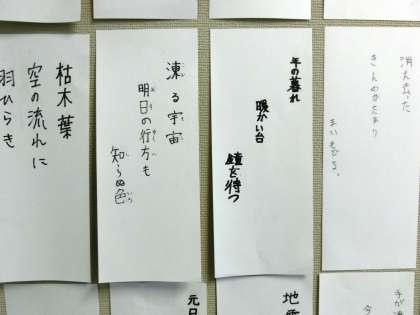 消え去った
きんのかたまり
まいもどる。
年の暮れ
暖かい台
鐘を待つ
凍る宇宙
明日の行方も
知らぬ色
枯木葉
空の流れに
羽ひらき
手が
今
地
元日